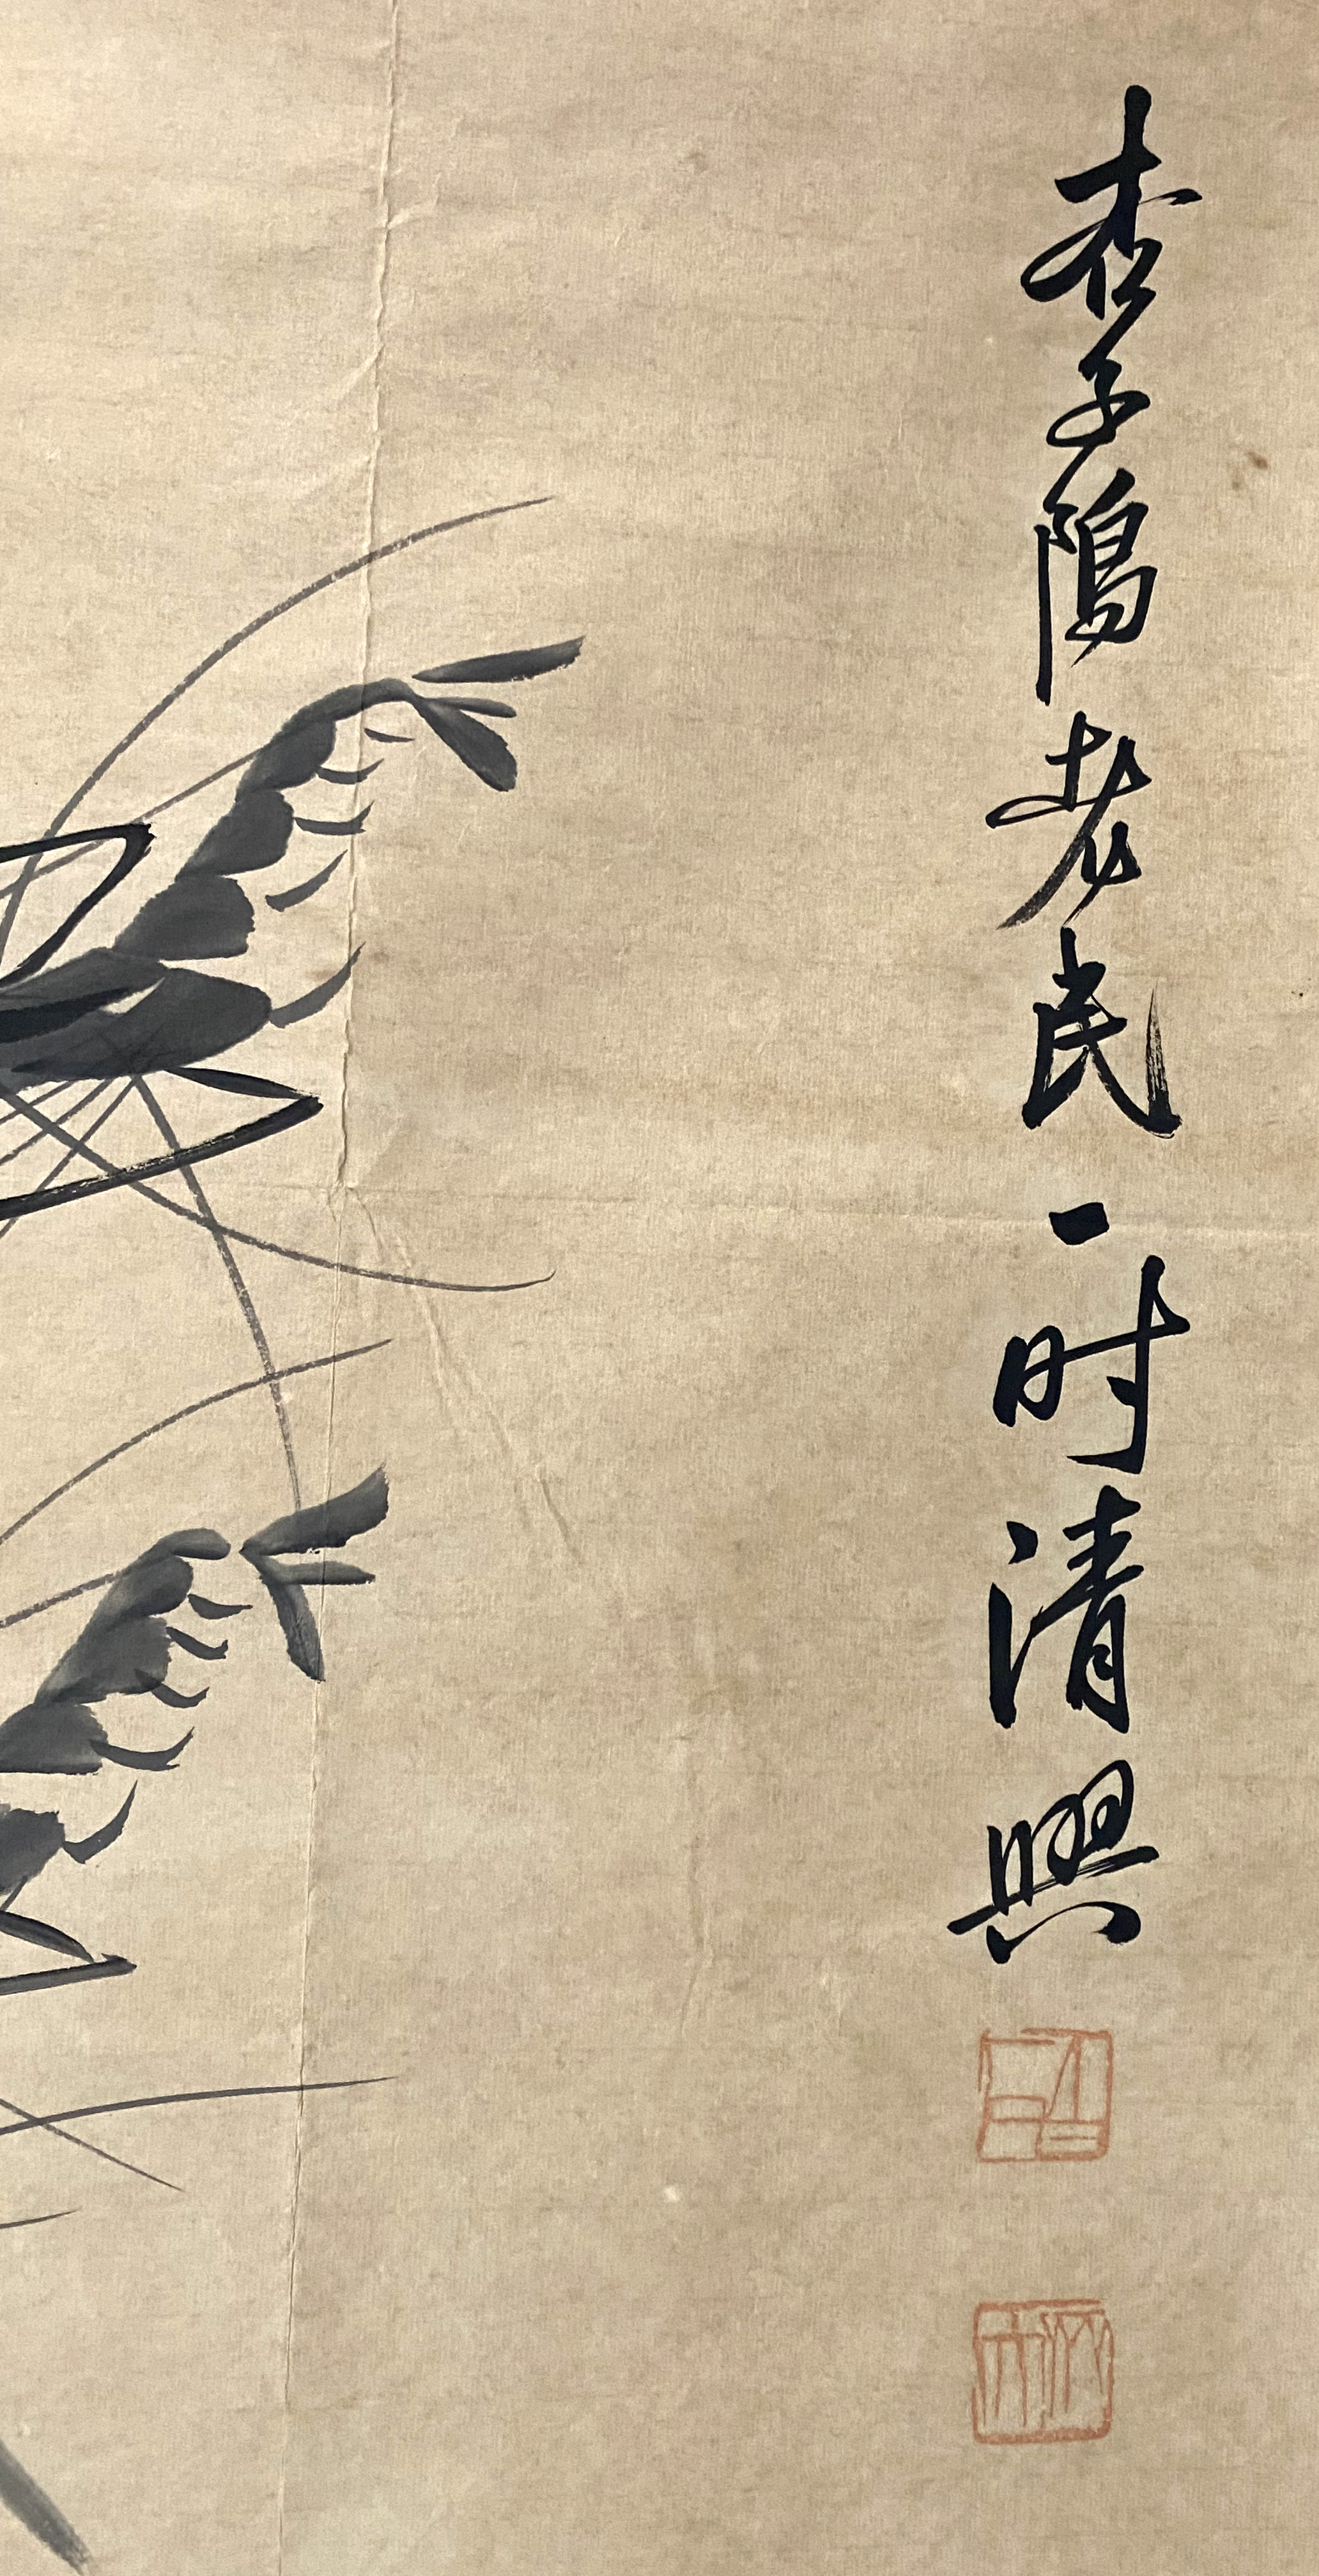 杏子隖老民一时清興